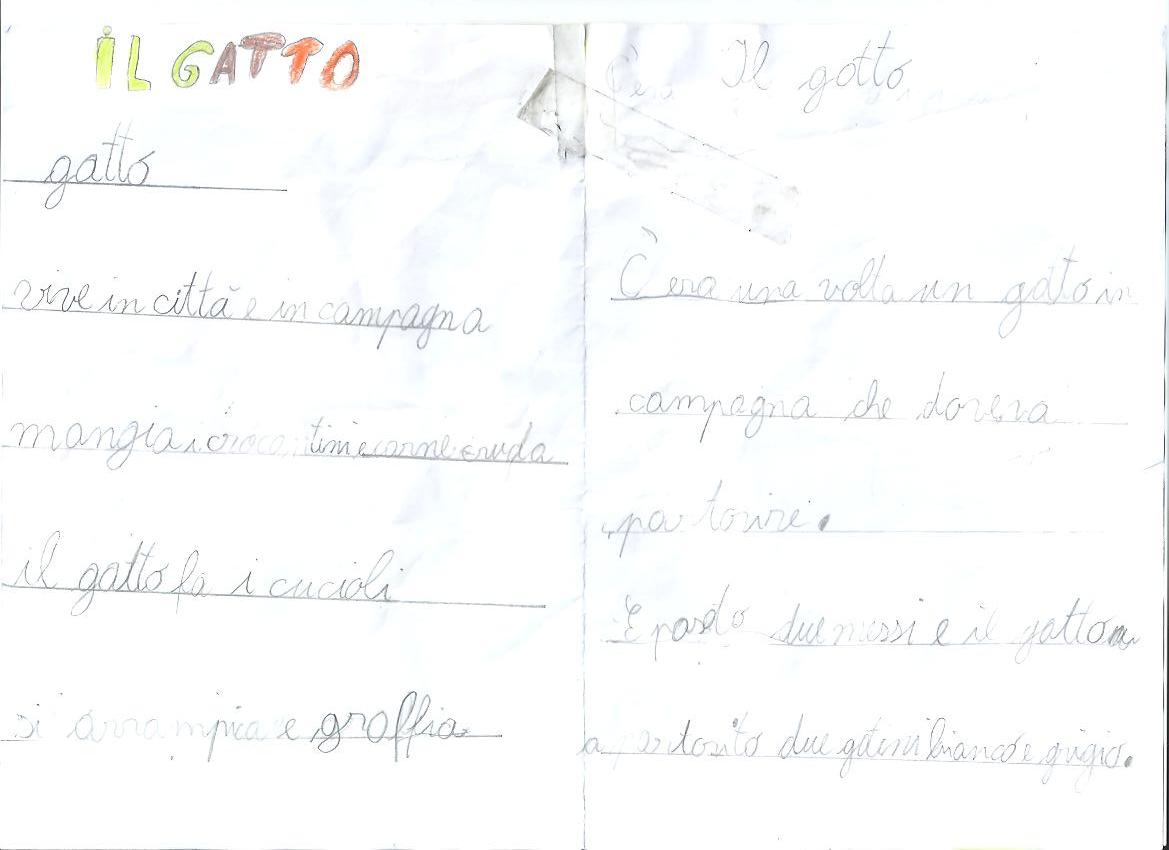 IL GATTO
gatto
vive in città e in campagna
mangia i croccantini e carne cruda
il gatto fa i cucioli
si arrampica e graffia
C'era Il gatto
C'era una volta un gatto in
campagna che doveva
partorire.
E due messi e il gatto
a partorito due gatini bianco e grigio.